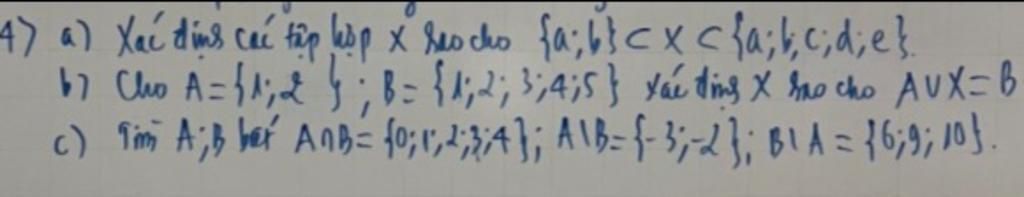 4) a) Xác định các tập hợp X sao cho {a;b} ⊂ X ⊂ {a;b,c,d;e}.
b) Cho A={1;2}; B={1;2;3;4;5} xác định X sao cho A∪X=B
c) Tìm A;B biết A∩B={0;1;2;3;4}; A\B={-3;-2}; B\A={6;9;10}.